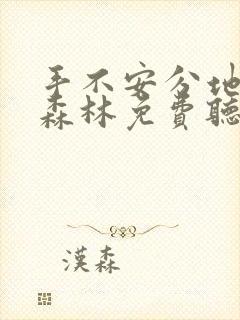 手不安分地
森林免費聽
漢森